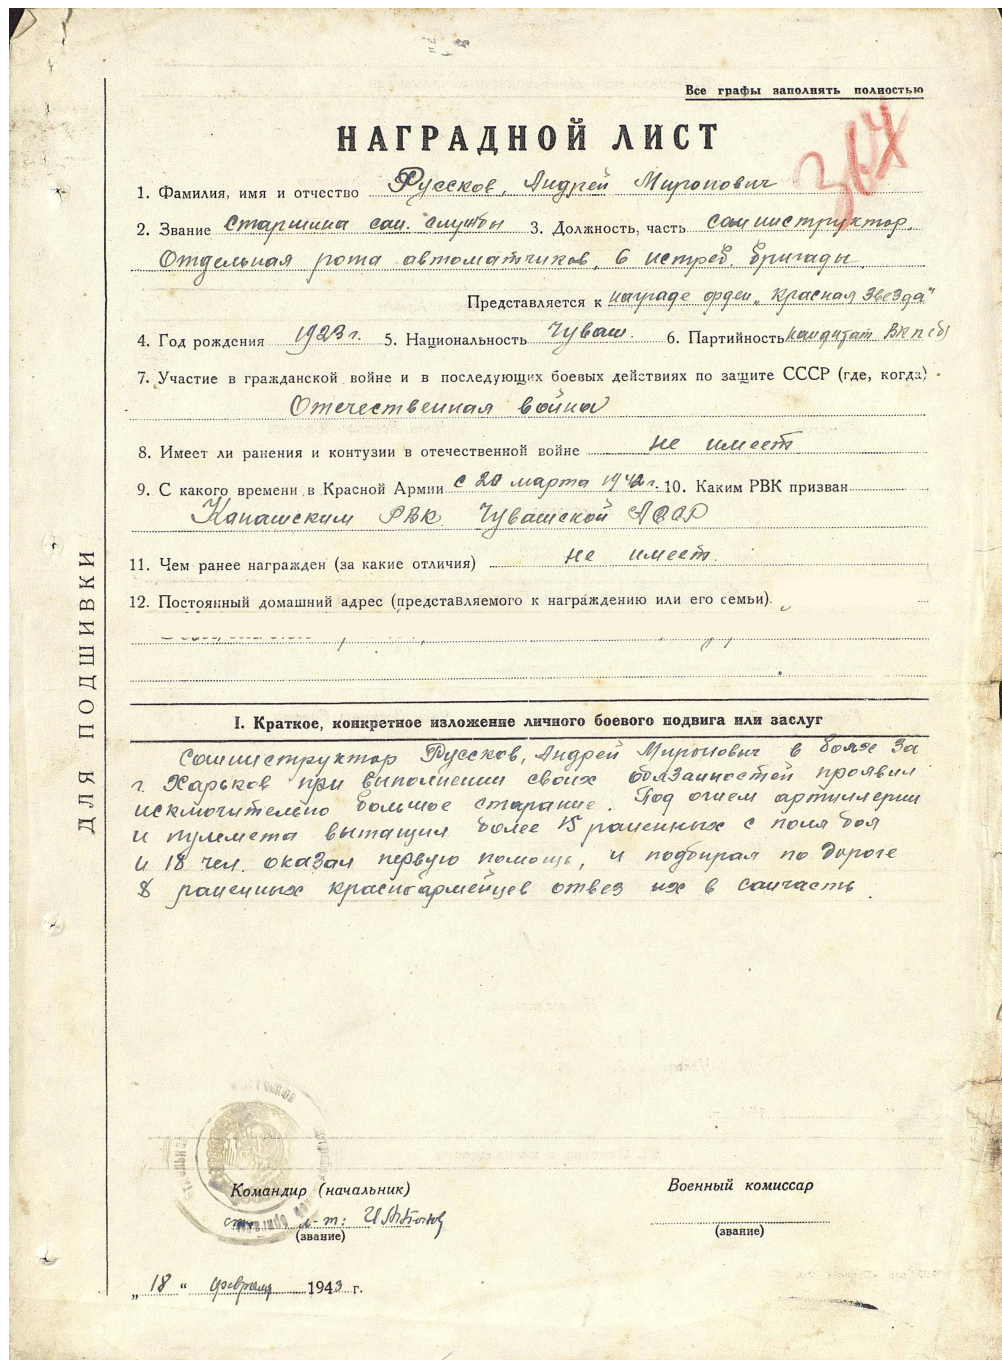 Все графы заполнять полностью
НАГРАДНОЙ ЛИСТ
1. Фамилия, имя и отчество Руссков, Андрей Миронович
2. Звание Старшина сан. службы 3. Должность, часть санинструктор.
Отдельная рота автоматчиков, 6 истреб. бригады
Представляется к награде орден „Красная Звезда"
4. Год рождения 1923 г. 5. Национальность Чуваш. 6. Партийность кандидат ВКП(б)
7. Участие в гражданской войне и в последующих боевых действиях по защите СССР (где, когда)
Отечественная война
8. Имеет ли ранения и контузии в отечественной войне не имеет
9. С какого времени в Красной Армии с 20 марта 1942 г. 10. Каким РВК призван
Канашским РВК Чувашской АССР
11. Чем ранее награжден (за какие отличия) не имеет.
12. Постоянный домашний адрес (представляемого к награждению или его семьи).
I. Краткое, конкретное изложение личного боевого подвига или заслуг
Санинструктор Руссков, Андрей Миронович в боях за
г. Харьков при выполнении своих обязанностей проявил
исключительно большое старание. Под огнем артиллерии
и пулемета вытащил более 15 раненных с поля боя
и 18 чел. оказал первую помощь, и подбирал по дороге
8 раненных красноармейцев отвез их в санчасть.
Командир (начальник)
Военный комиссар
ст. л-т:
(звание)
(звание)
„18" февраля 1943 г.
ДЛЯ ПОДШИВКИ